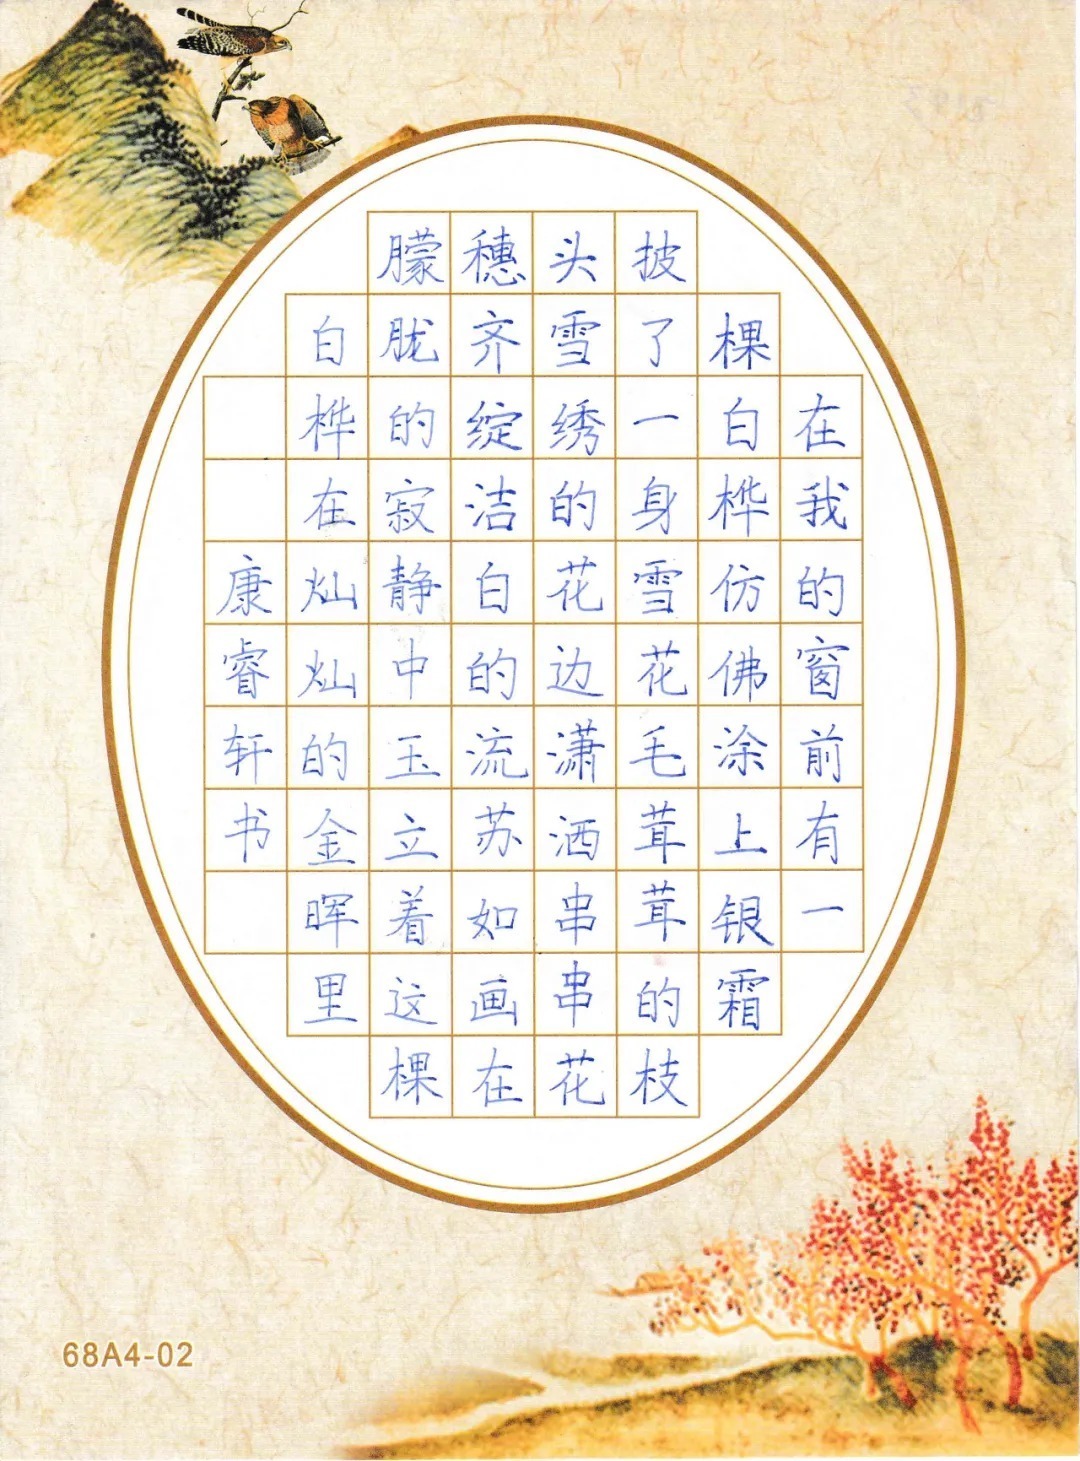 在我的窗前有一
棵白桦仿佛涂上银霜
披了一身雪花毛茸茸的枝
头雪绣的花边潇洒串串花
穗齐绽洁白的流苏如画在
朦胧的寂静中玉立着这棵
白桦在灿灿的金晖里
康睿轩书
68A4-02